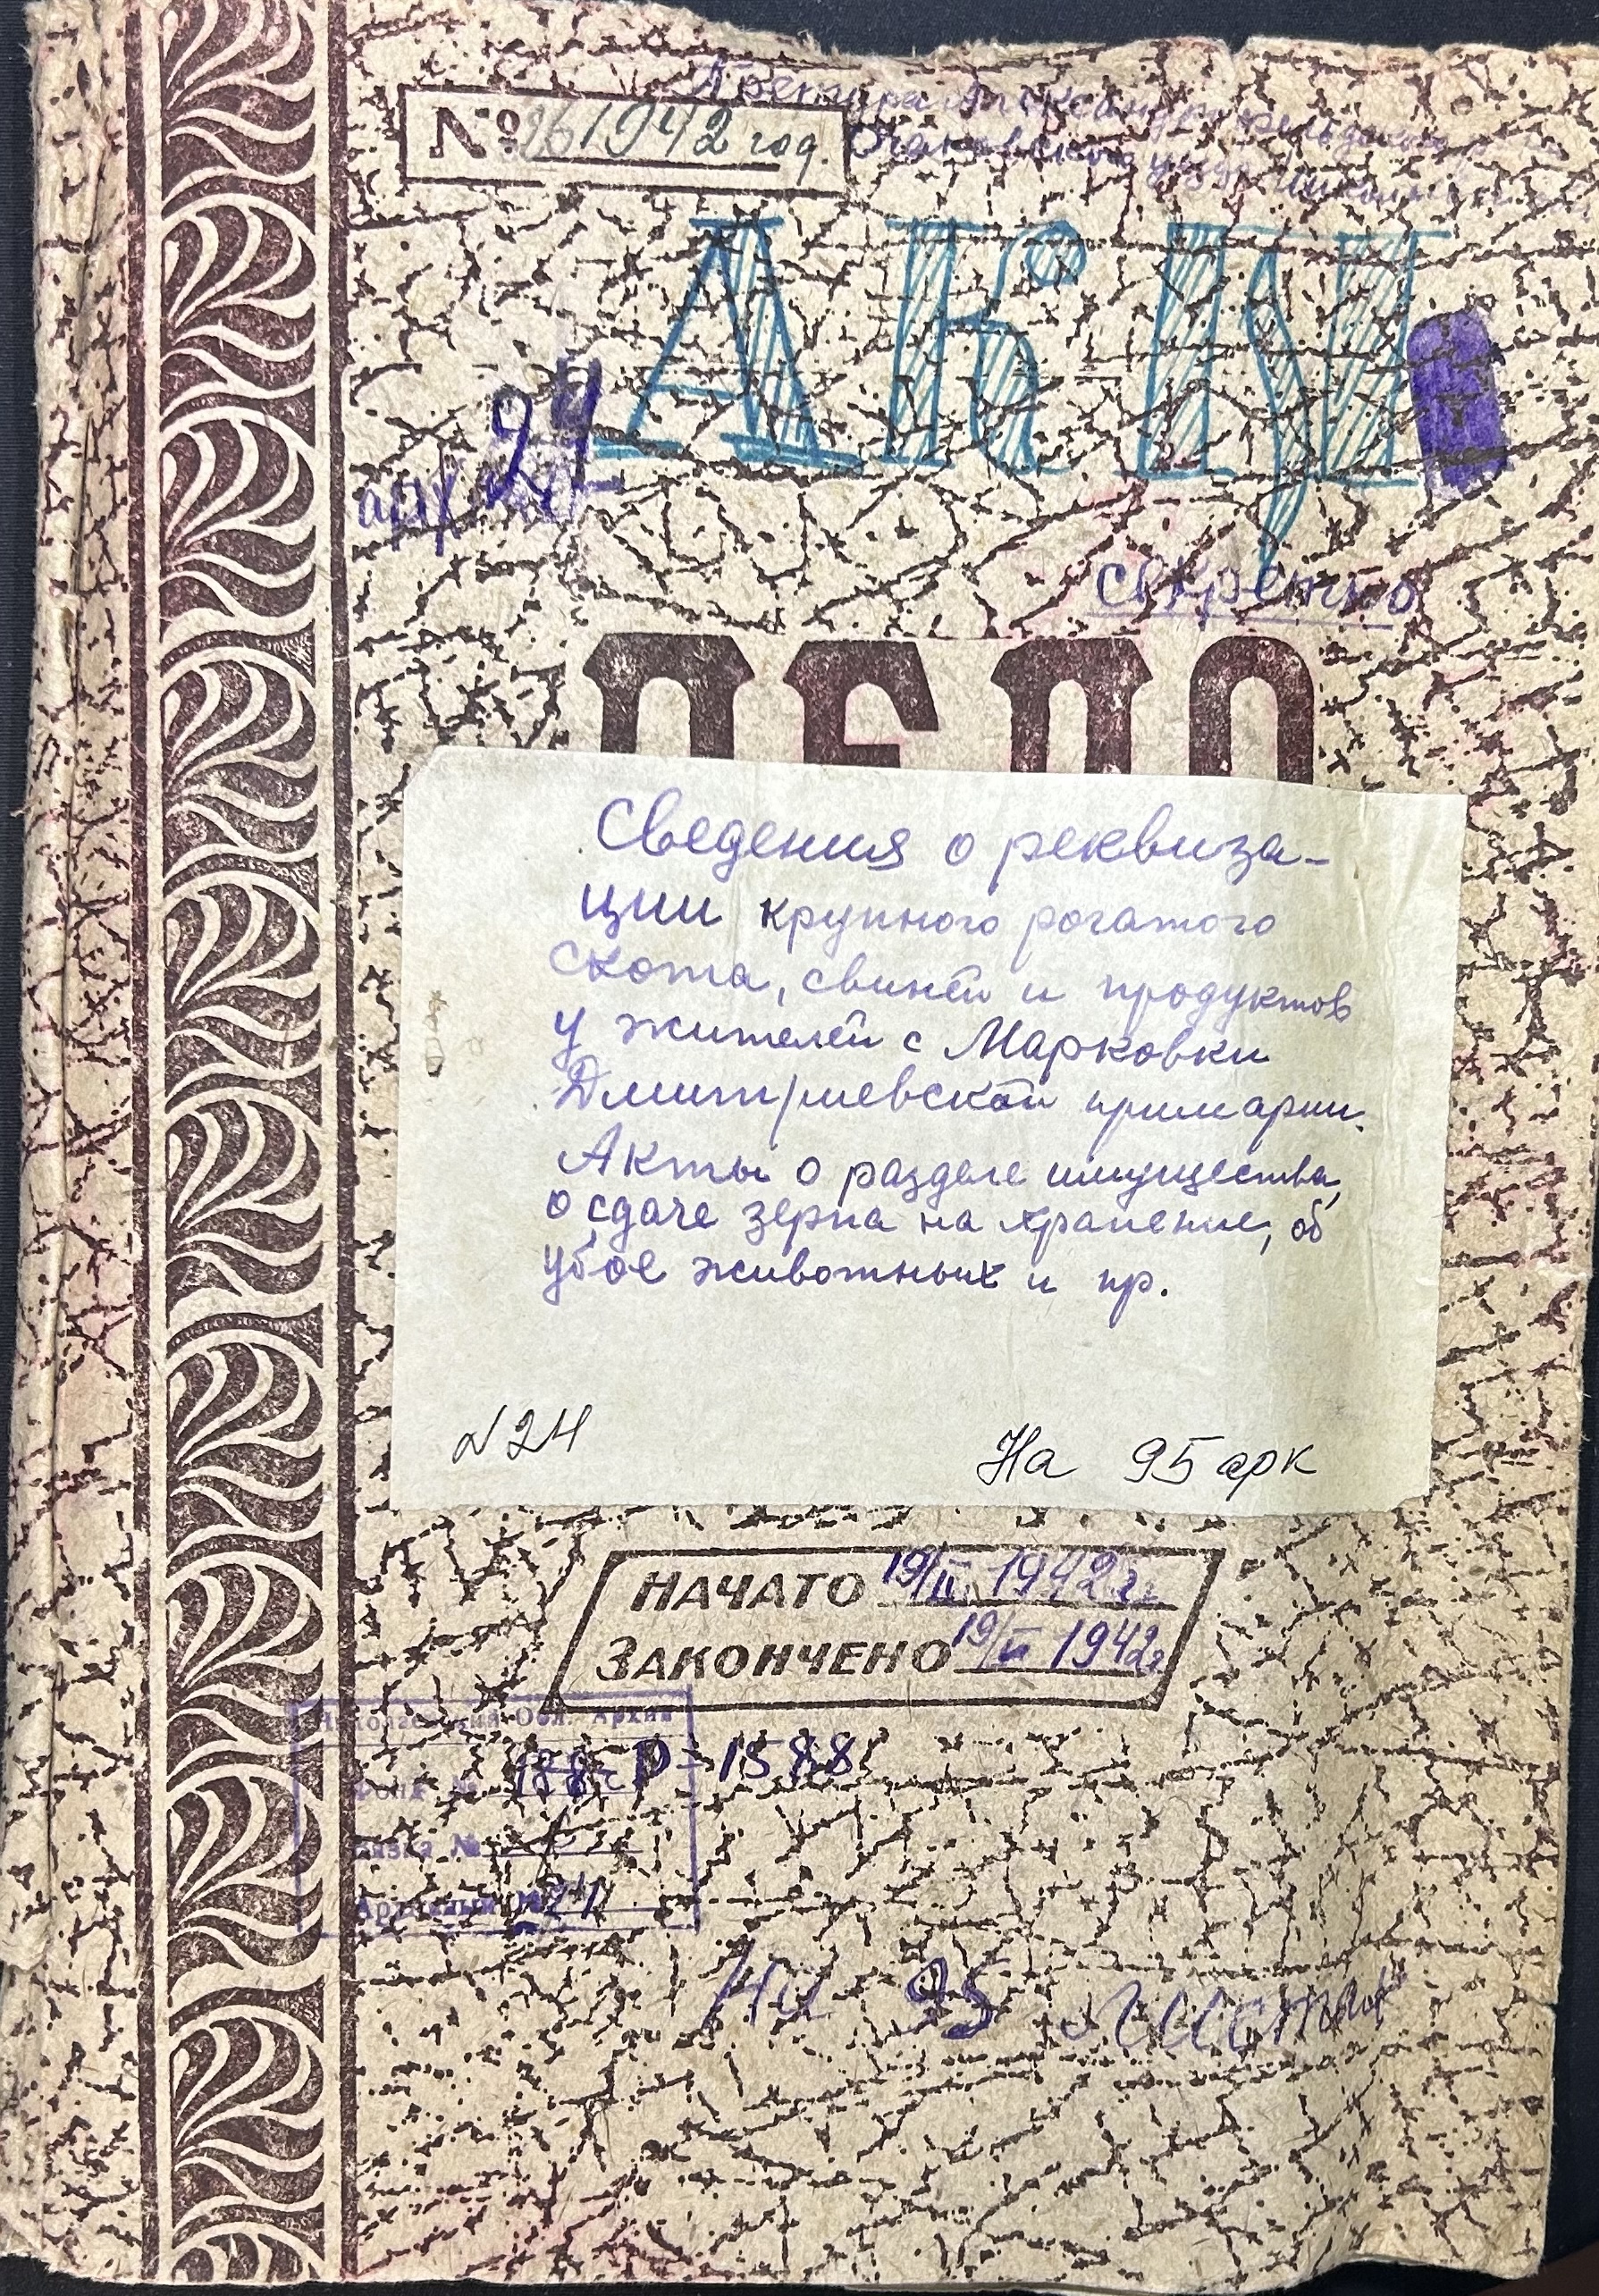 № 26 1942 год.
Очаковского уезда
АКЦ
24
секретно
ДЕЛО
Сведения о реквиза-
ции крупного рогатого
скота, свиней и продуктов
у жителей с Марковки
Дмитриевской примарии.
Акты о разделе имущества,
о сдаче зерна на хранение, об
убое животных и пр.
№24 На 95 арк
НАЧАТО 19/II 1942 г.
ЗАКОНЧЕНО 19/II 1942 г
Николаевский Обл. Архив
Фонд № Р-1588
Связка №
Архивный № 24
На 95 листах